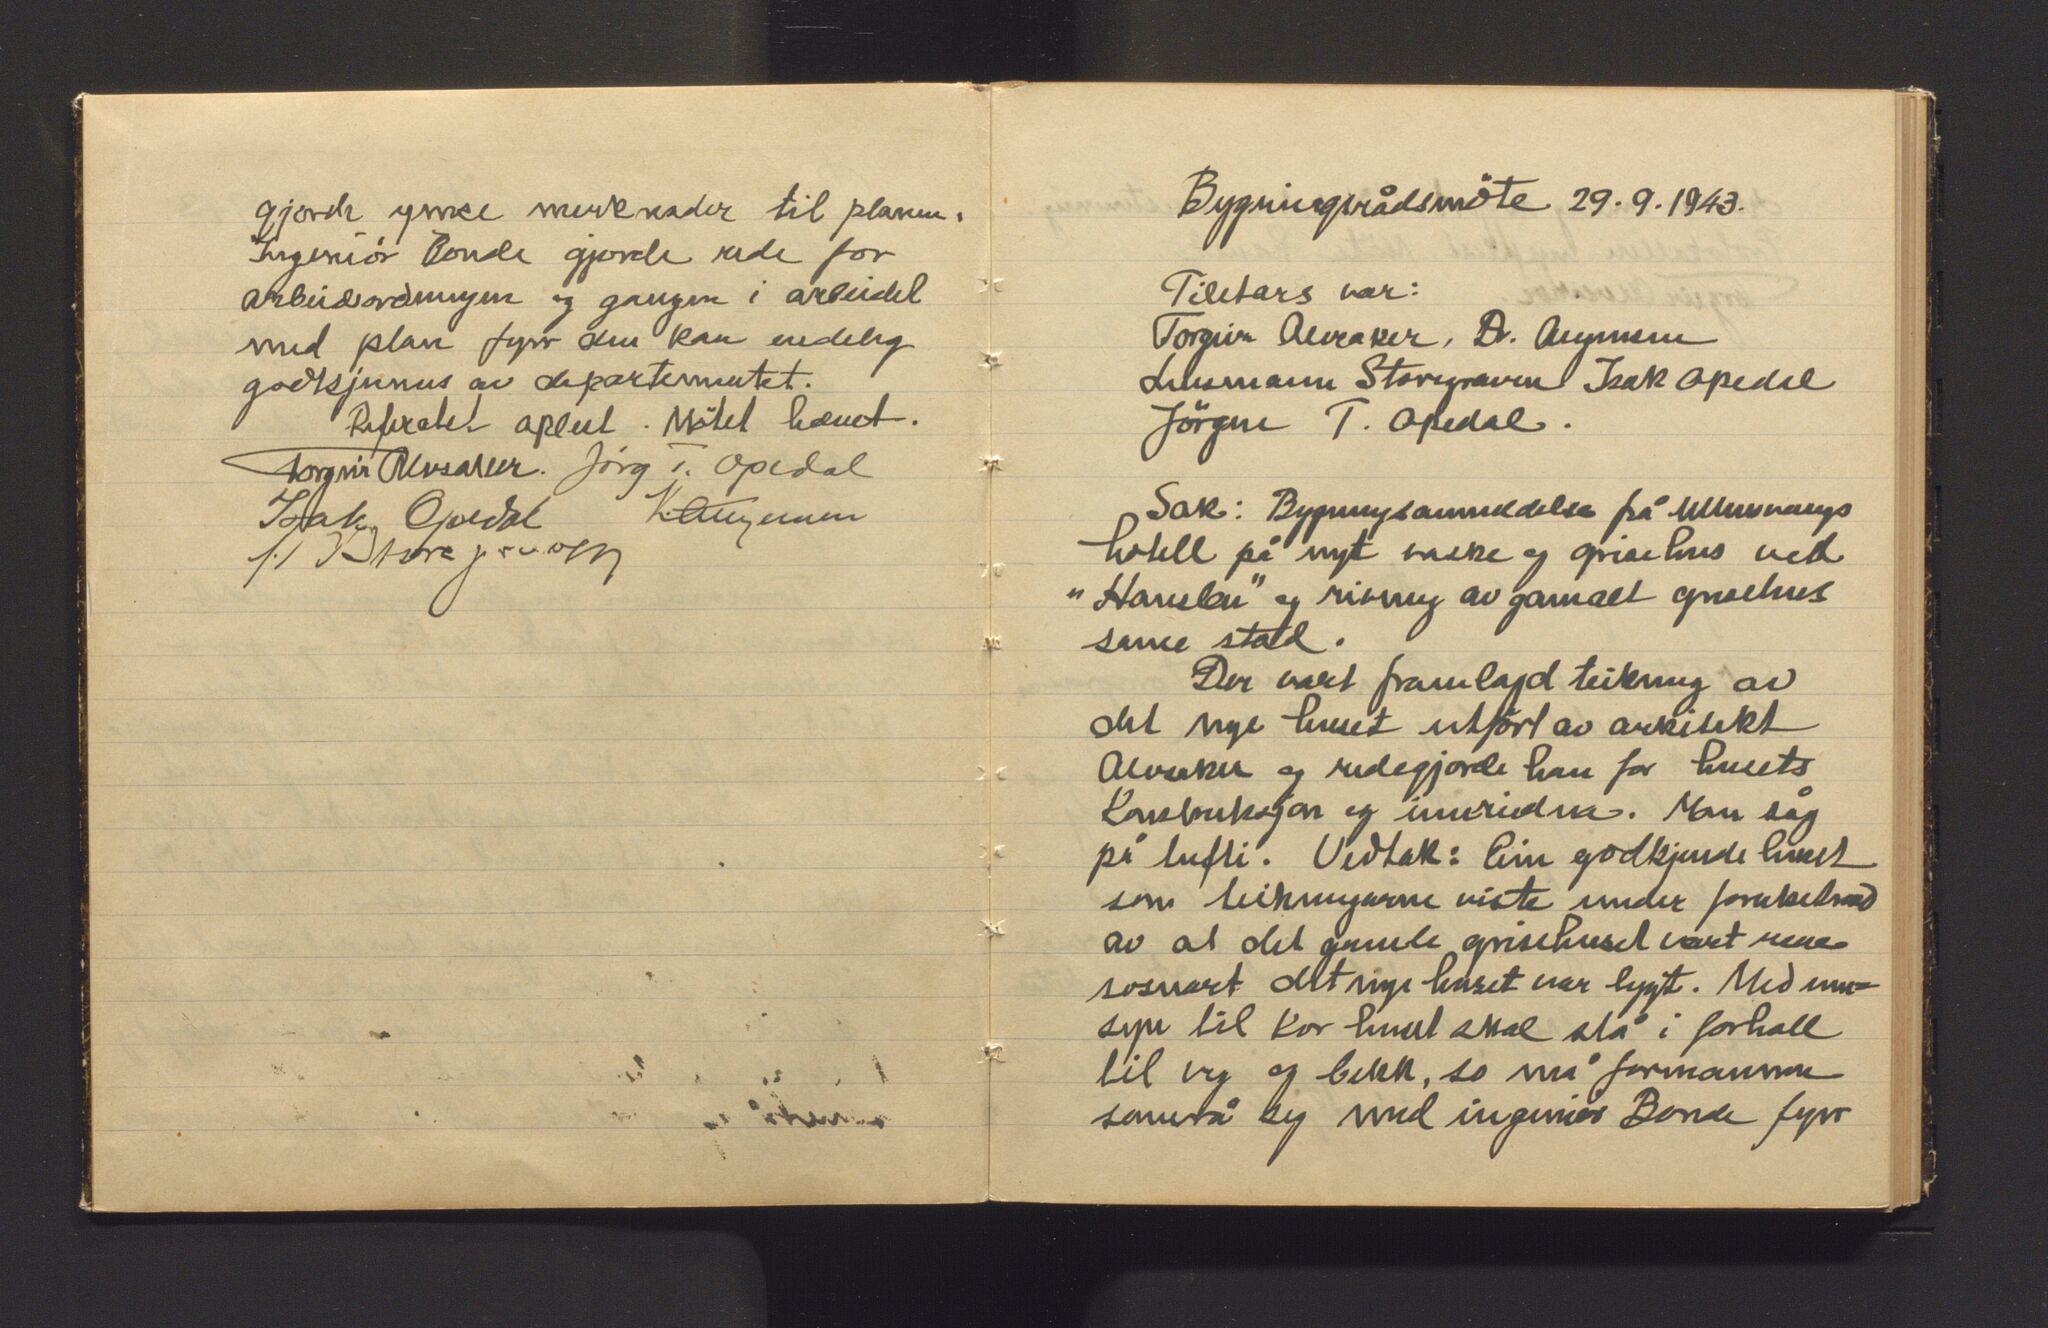 gjorde ymse merknader til planen.
Ingeniör Bonde gjorde rede for
arbeidsordningen og gangen i arbeidet
med plan fyrr den kan endeleg
godkjennes av departementet.
Referatet oplest. Mötet hævet.
Torgeir Alvsaker. Jörg T. Opedal
Isak Opedal K Augunsen
Storegraven
Bygningsrådsmöte 29.9.1943.
Tilstads var:
Torgeir Alvsaker, Dr. Augunsen
Lensmann Storegraven Isak Opedal
Jörgen T. Opedal.
Sak: Bygningsanmeldelse frå Ullensvangs
hotell på nytt vaske og grisehus ved
"Hanslau" og rivning av gamalt grisehus
same stad.
Der vart framlagd teikning av
det nye huset utfört av arkitekt
Alvsaker og redegjorde han for husets
Konstruksjon og innreidna. Man såg
på tufti. Vedtak: Ein godkjende huset
som teikningarne viste under forutsetnad
av at det gamle grisehuset vart
sosnart det nye huset var bygt. Med um=
syn til kor huset skal stå i forhold
til veg og bekk, so må formannen
samrå seg med ingeniör Bonde fyrr